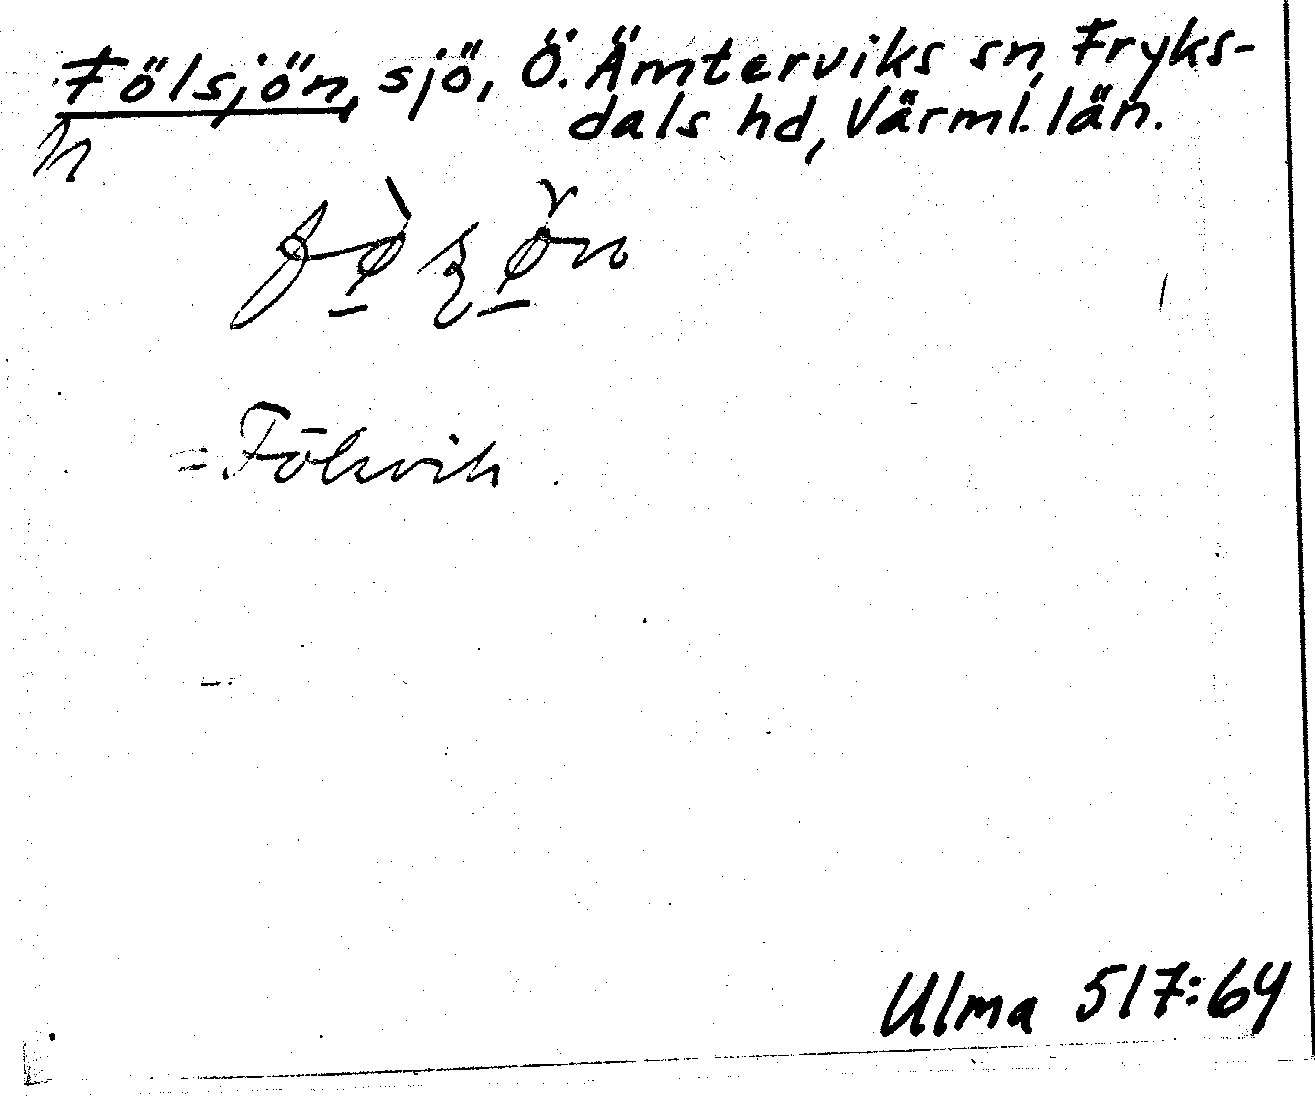 Fölsjön, sjö, Ö. Ämterviks sn, Fryks-
dals hd, Värml. län.
= Fölsvik
Ulma 517:64